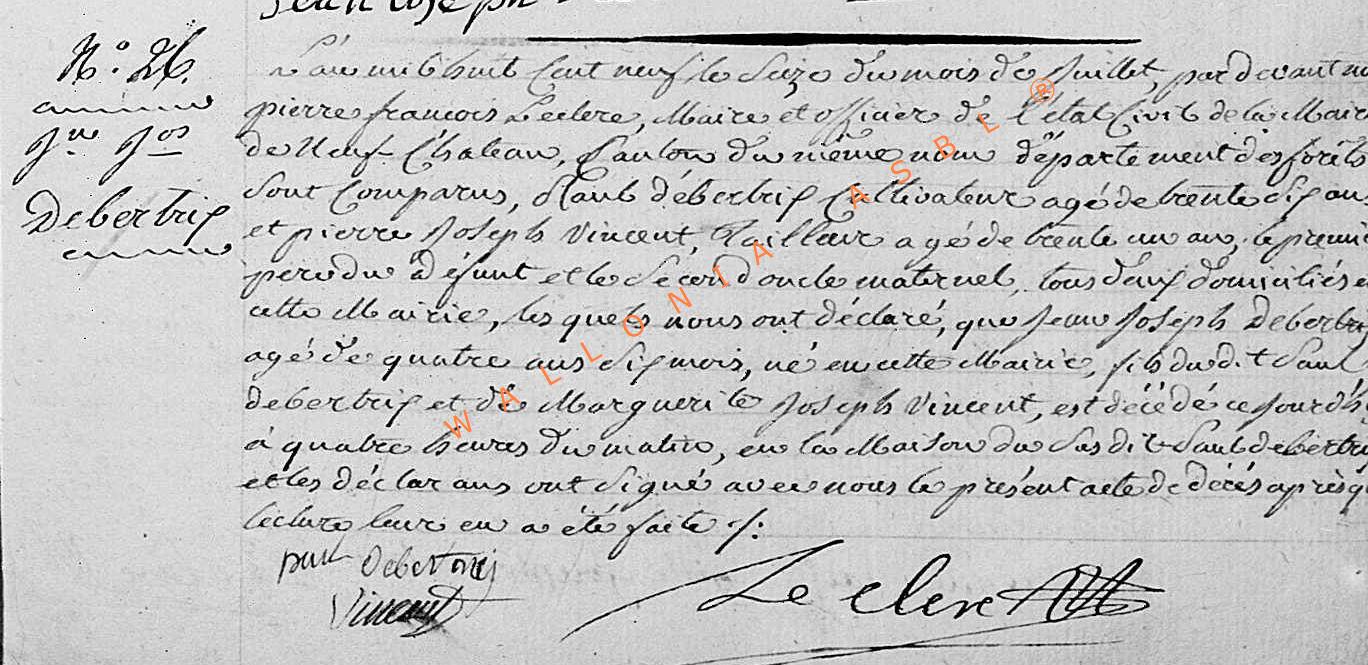 Jean Joseph
N.° 26.
L'an mil huit Cent neuf le Seize du mois de Juillet, par devant no
pierre francois Leclere, Maire et officier de l'état Civil de la Mair
Jn Jos
de Neuf Chateau, Canton du même nom département des forêts
Debertrix
Sont Comparus, Paul débertrix Cultivateur agé de trente six an
et pierre Joseph Vincent, Tailleur agé de trente un an, le premie
pere du défunt et le Sécond oncle maternel, tous deux domiciliés e
cette Mairie, les quels nous ont déclaré, que Jean Joseph Debertri
agé de quatre ans Six mois, né en cette Mairie, fils du dit Paul
debertrix et de Marguerite Joseph Vincent, est décédé ce Jourdh
à quatre heures du matin, en la Maison du Sus dit Paul debertri
et les déclarans ont Signé avec nous le présent acte de décés après q
lecture leur en a été faite ./:
paul debertrix
Vincent
Leclere
WALLONIA ASBL ®